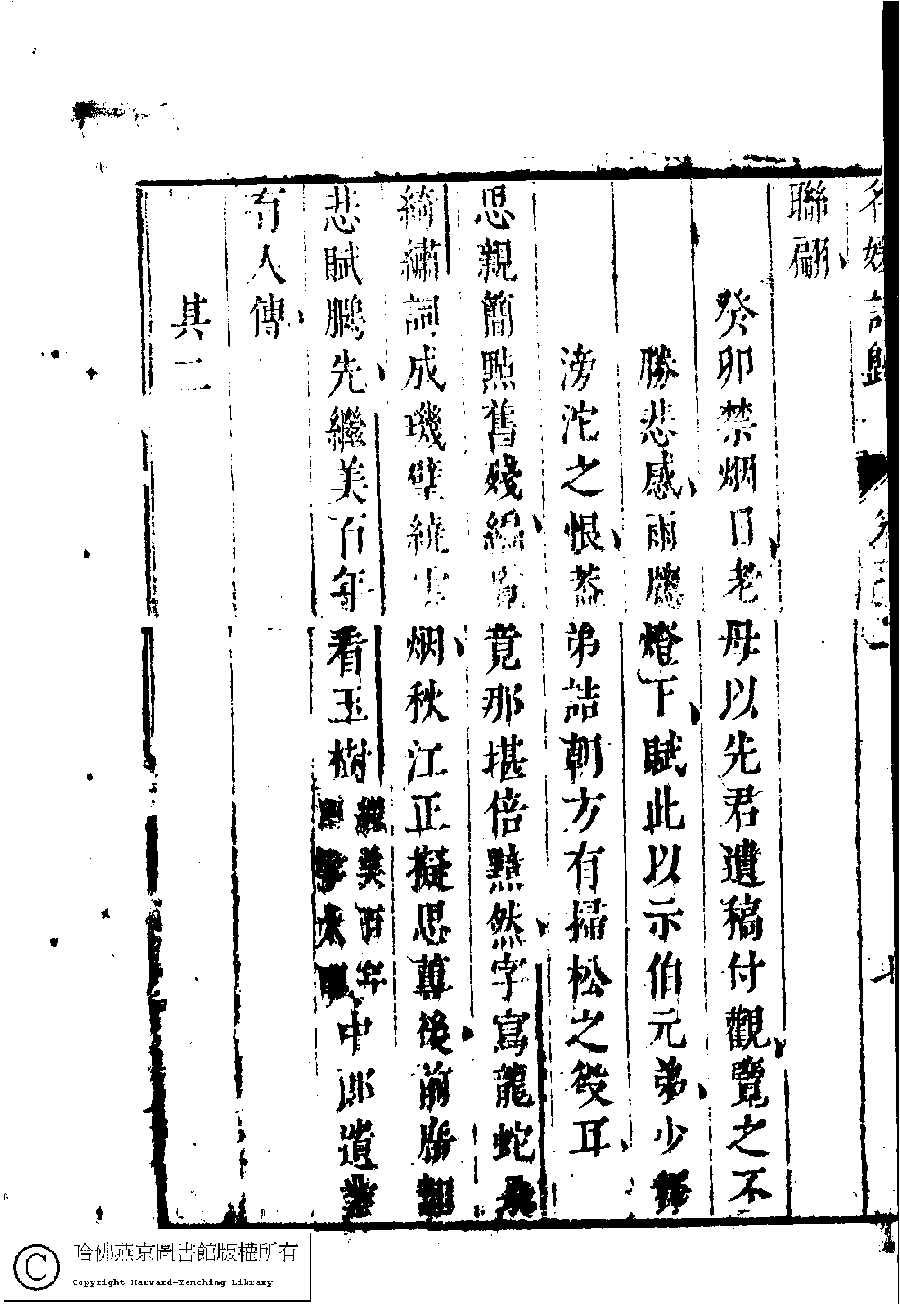 聯翩
癸卯禁烟日老母以先君遺稿付觀覽之不
勝悲感雨牕燈下賦此以示伯元弟少
滂沱之恨葢弟詰朝方有掃松之役耳
思親簡點舊殘編覽竟那堪倍黯然字寫龍蛇
綺繡詞成璣璧繞雲烟秋江正擬思蓴後前
悲賦鵩先繼美百年看玉樹 繼美百年 中郎遺
有人傳
其二
哈佛燕京圖書館版權所有
Copyright Harvard-Yenching Library